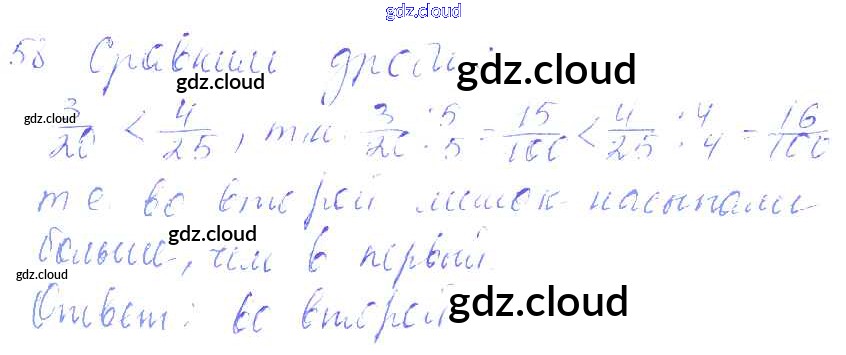 gdz.cloud
58 Сравним дроби:
gdz.cloud gdz.cloud
gdz.cloud
3/20 < 4/25, т.к. 3/20 : 5/5 = 15/100 < 4/25 : 4/4 = 16/100
т е. во второй мешок насыпали
gdz.cloud
больше, чем в первый.
gdz.cloud gdz.cloud
Ответ: во второй
gdz.cloud